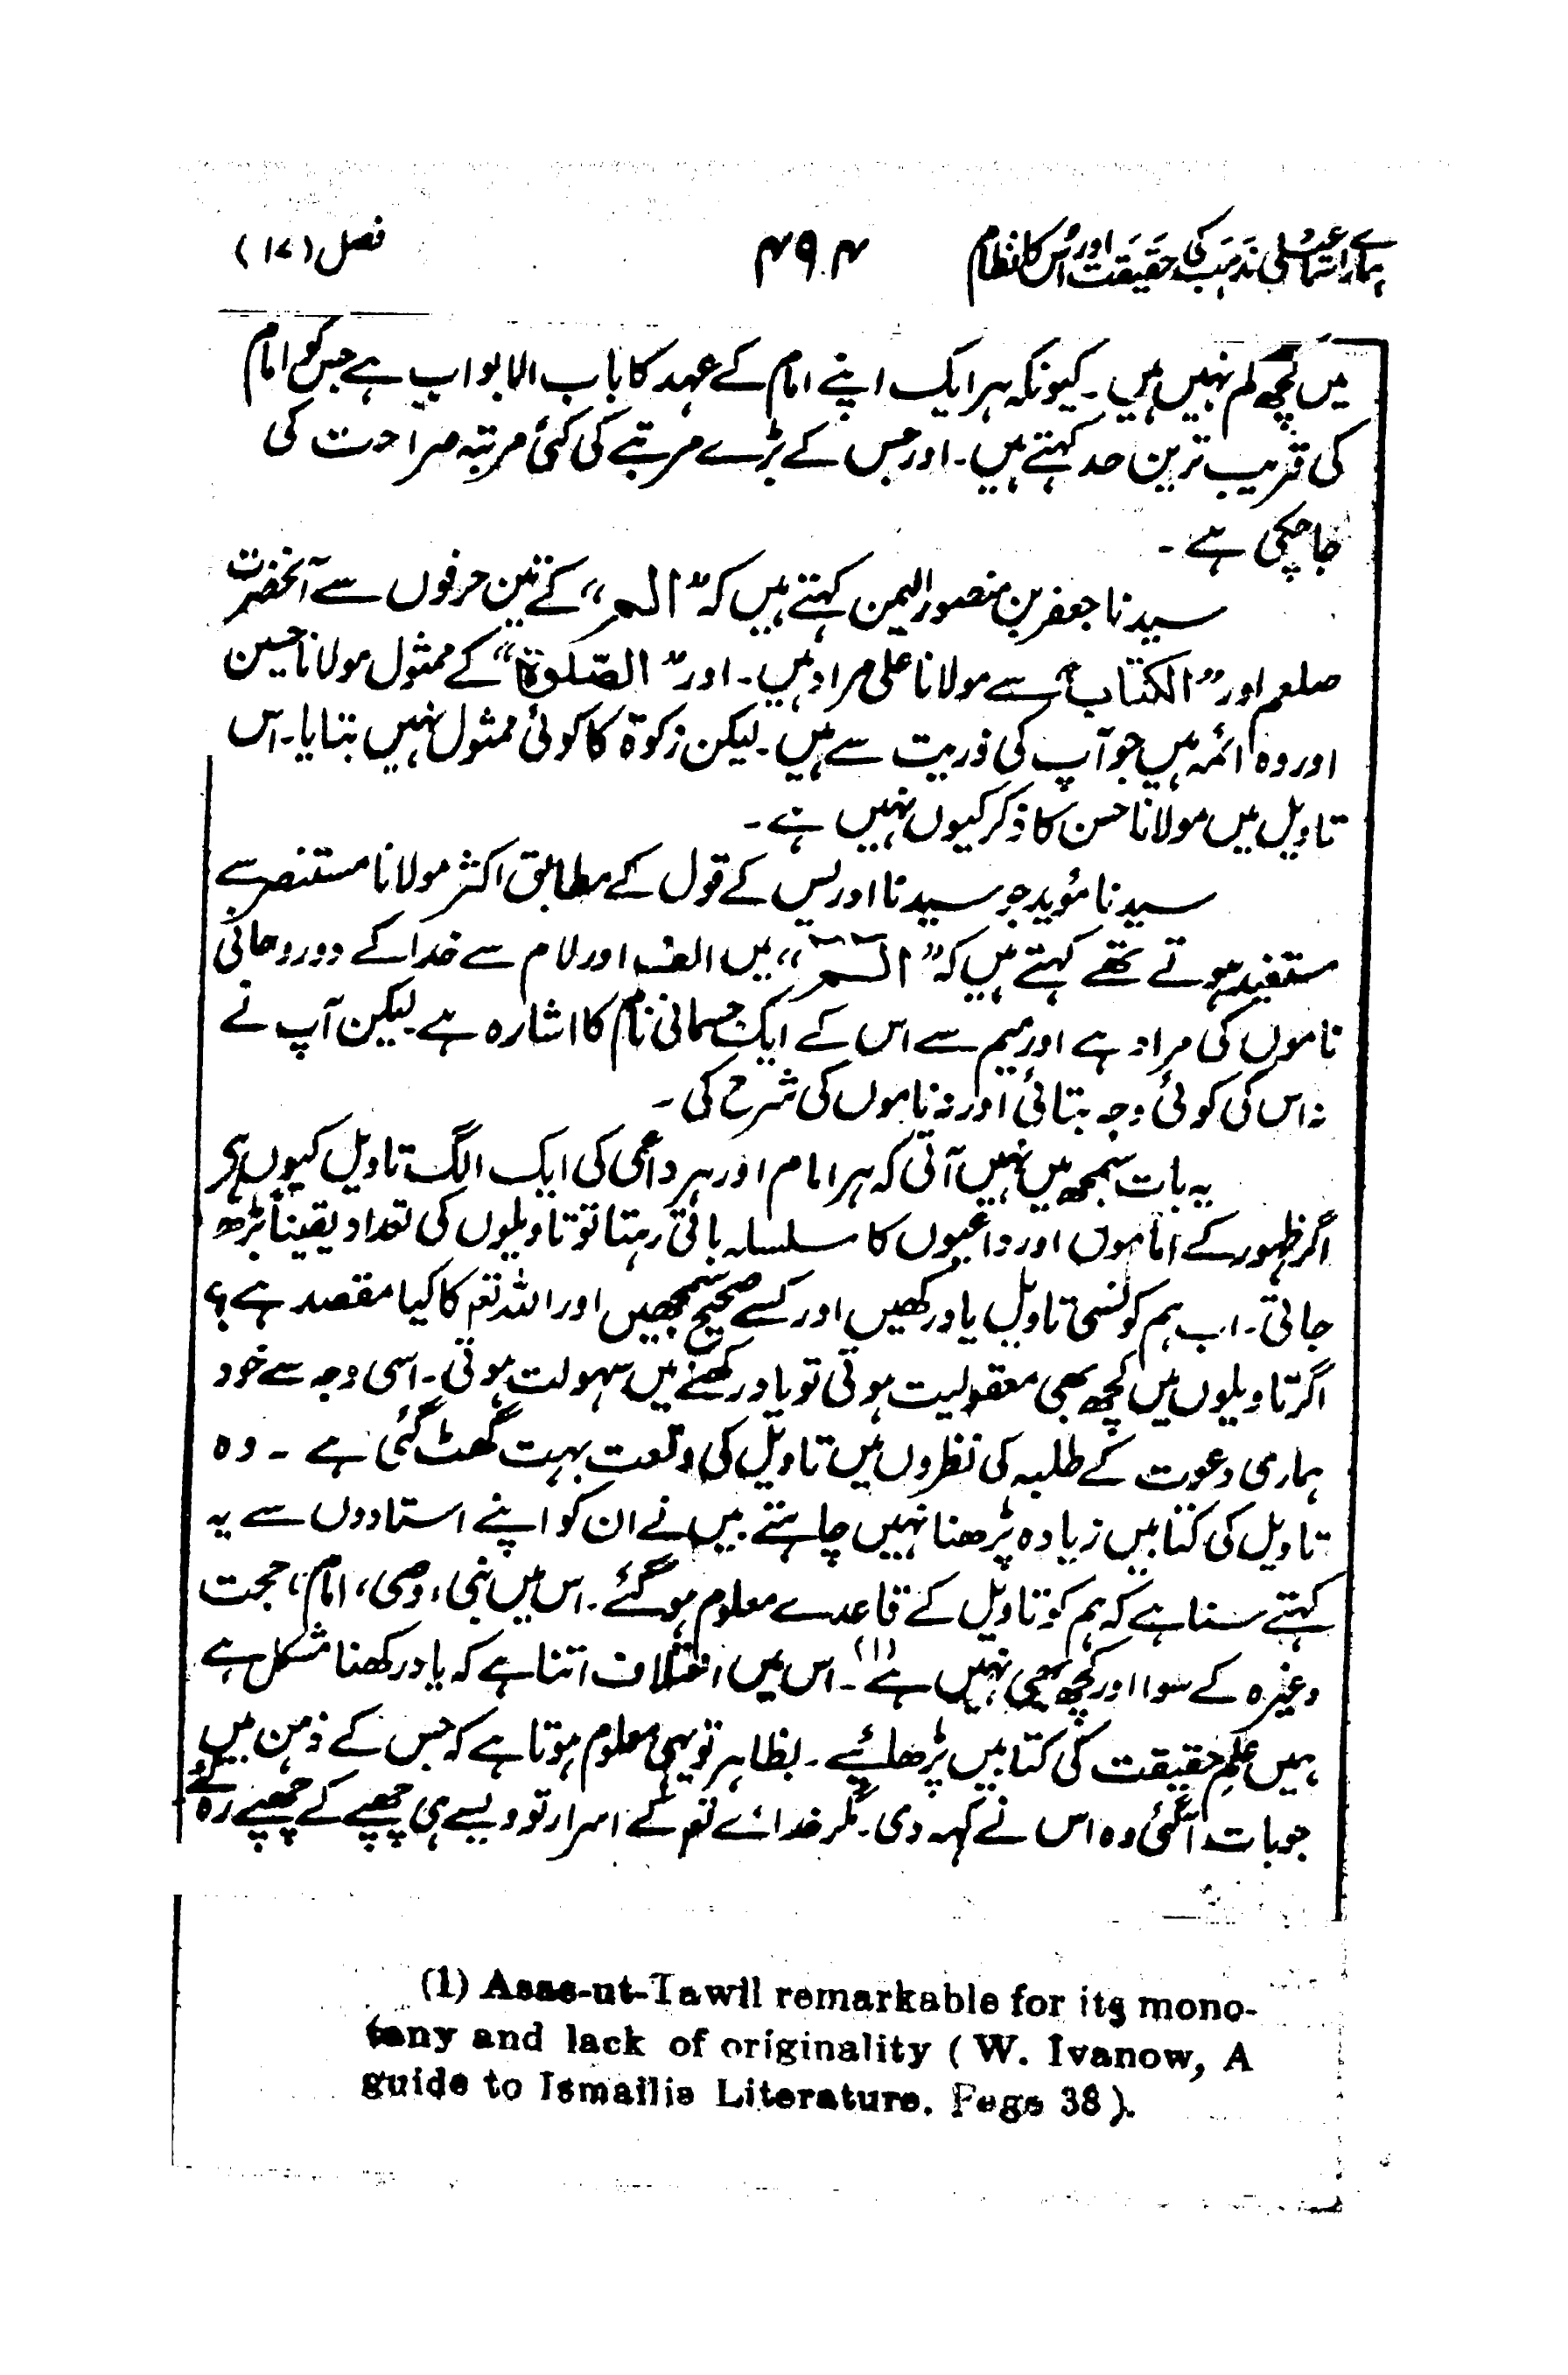 ہمارے اسماعیلی مذہب کی حقیقت اور اُس کا نظام ۴۹۴ فصل (۱۷)
میں کچھ کم نہیں ہیں۔ کیونکہ ہر ایک اپنے امام کے عہد کا باب الابواب ہے جس کو امام
کی قریب ترین حد کہتے ہیں۔ اور جس کے بڑے مرتبے کی کئی مرتبہ صراحت کی
جا چکی ہے۔
سیدنا جعفر بن منصور الیمن کہتے ہیں کہ ”الم“ کے تین حرفوں سے آنحضرت
صلعم اور ”الکتاب“ سے مولانا علی مراد ہیں۔ اور ”الصّلوٰۃ“ کے ممثول مولانا حسین
اور وہ ائمہ ہیں جو آپ کی ذریت سے ہیں۔ لیکن زکوۃ کا کوئی ممثول نہیں بتایا۔ اس
تاویل میں مولانا حسن کا ذکر کیوں نہیں ہے۔
سیدنا مؤید جو سیدنا ادریس کے قول کے مطابق اکثر مولانا مستنصر سے
مستفید ہوتے تھے کہتے ہیں کہ ”الٓـمّٓ“ میں الف اور لام سے خدا کے دو روحانی
ناموں کی مراد ہے اور میم سے اس کے ایک جسمانی نام کا اشارہ ہے۔ لیکن آپ نے
نہ اس کی کوئی وجہ بتائی اور نہ ناموں کی شرح کی۔
یہ بات سمجھ میں نہیں آتی کہ ہر امام اور ہر داعی کی ایک الگ تاویل کیوں ہے
اگر ظہور کے اماموں اور داعیوں کا سلسلہ باقی رہتا تو تاویلوں کی تعداد یقیناً بڑھ
جاتی۔ اب ہم کونسی تاویل یاد رکھیں اور کسے صحیح سمجھیں اور اللہ تع کا کیا مقصد ہے؟
اگر تاویلوں میں کچھ بھی معقولیت ہوتی تو یاد رکھنے میں سہولت ہوتی۔ اسی وجہ سے خود
ہماری دعوت کے طلبہ کی نظروں میں تاویل کی وقعت بہت گھٹ گئی ہے۔ وہ
تاویل کی کتابیں زیادہ پڑھنا نہیں چاہتے۔ میں نے ان کو اپنے استادوں سے یہ
کہتے سنا ہے کہ ہم کو تاویل کے قاعدے معلوم ہو گئے۔ اس میں نبی، وصی، امام، حجت
وغیرہ کے سوا اور کچھ بھی نہیں ہے(۱)۔ اس میں اختلاف اتنا ہے کہ یاد رکھنا مشکل ہے
ہمیں علمِ حقیقت کی کتابیں پڑھائیے۔ بظاہر تو یہی معلوم ہوتا ہے کہ جس کے ذہن میں
جو بات آگئی وہ اس نے کہہ دی۔ مگر خدائے تع کے اسرار تو ویسے ہی چھپے کے چھپے رہ گئے
(1) Asas-ut-Tawil remarkable for its mono-
tany and lack of originality ( W. Ivanow, A
guide to Ismailia Literature. Page 38 ).